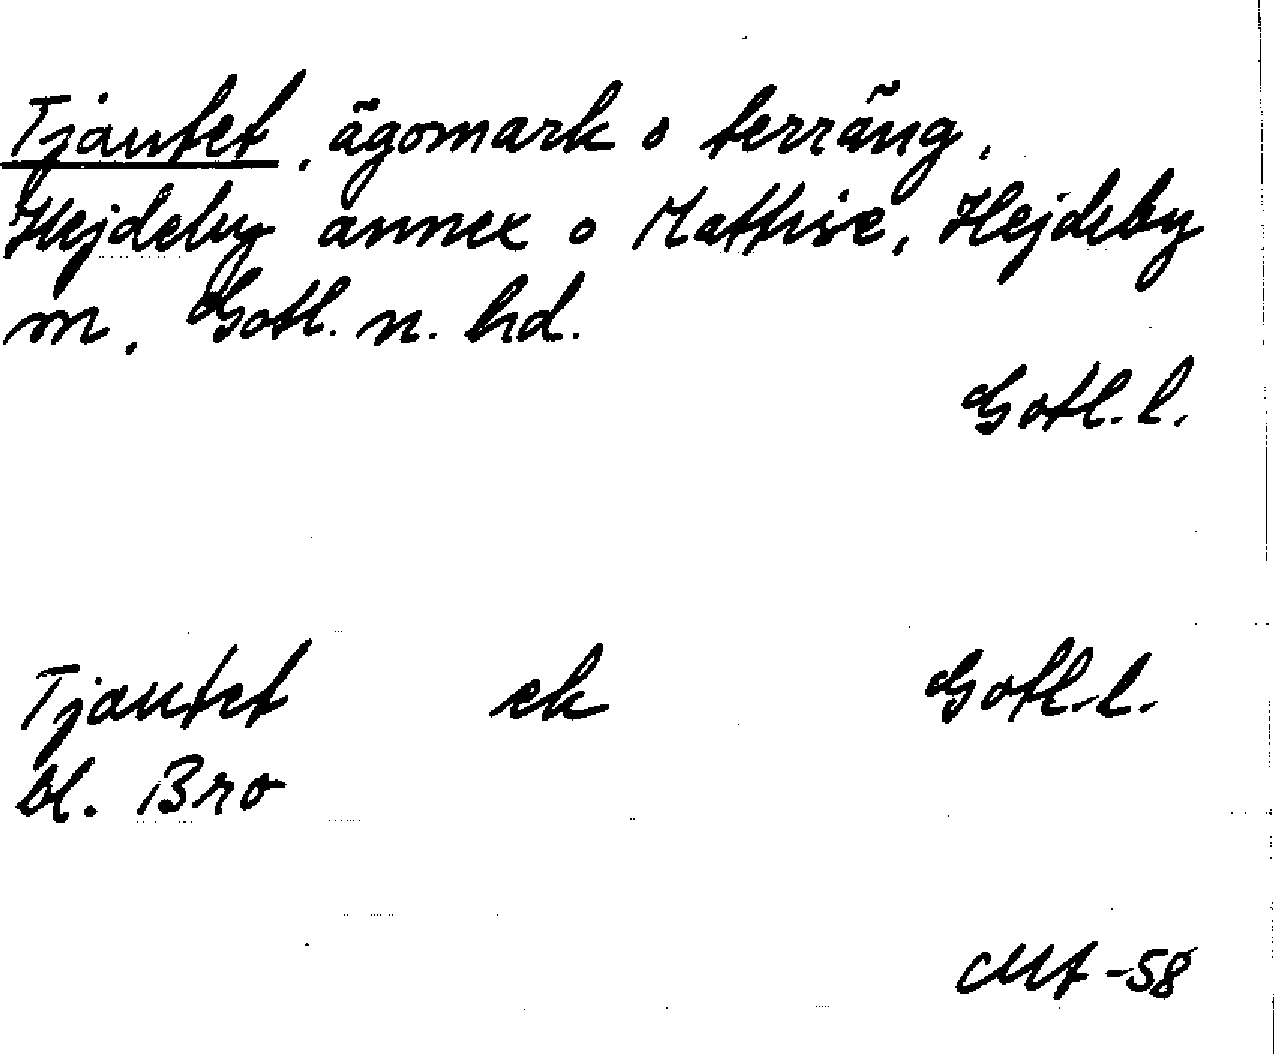 Tjautet, ägomark o terräng,
Hejdeby annex o Matthise, Hejdeby
sn, Gotl. n. hd.
Gotl. l.
Tjautet ek Gotl. l.
bl. Bro
-58